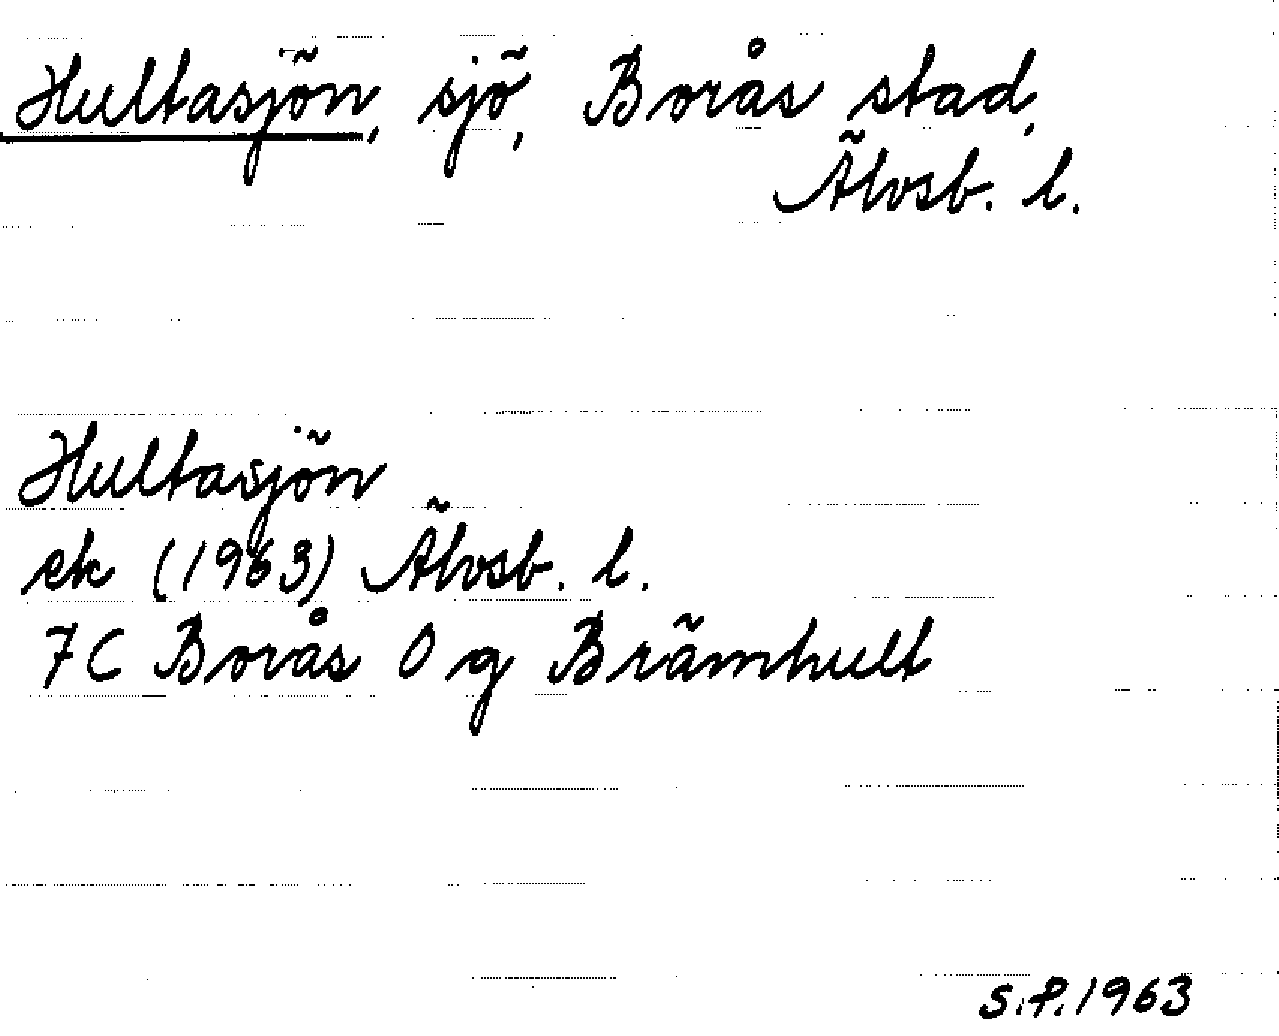 Hultasjön, sjö, Borås stad,
Älvsb. l.
Hultasjön
ek (1963) Älvsb. l.
7C Borås 0 g Brämhult
S.P. 1963